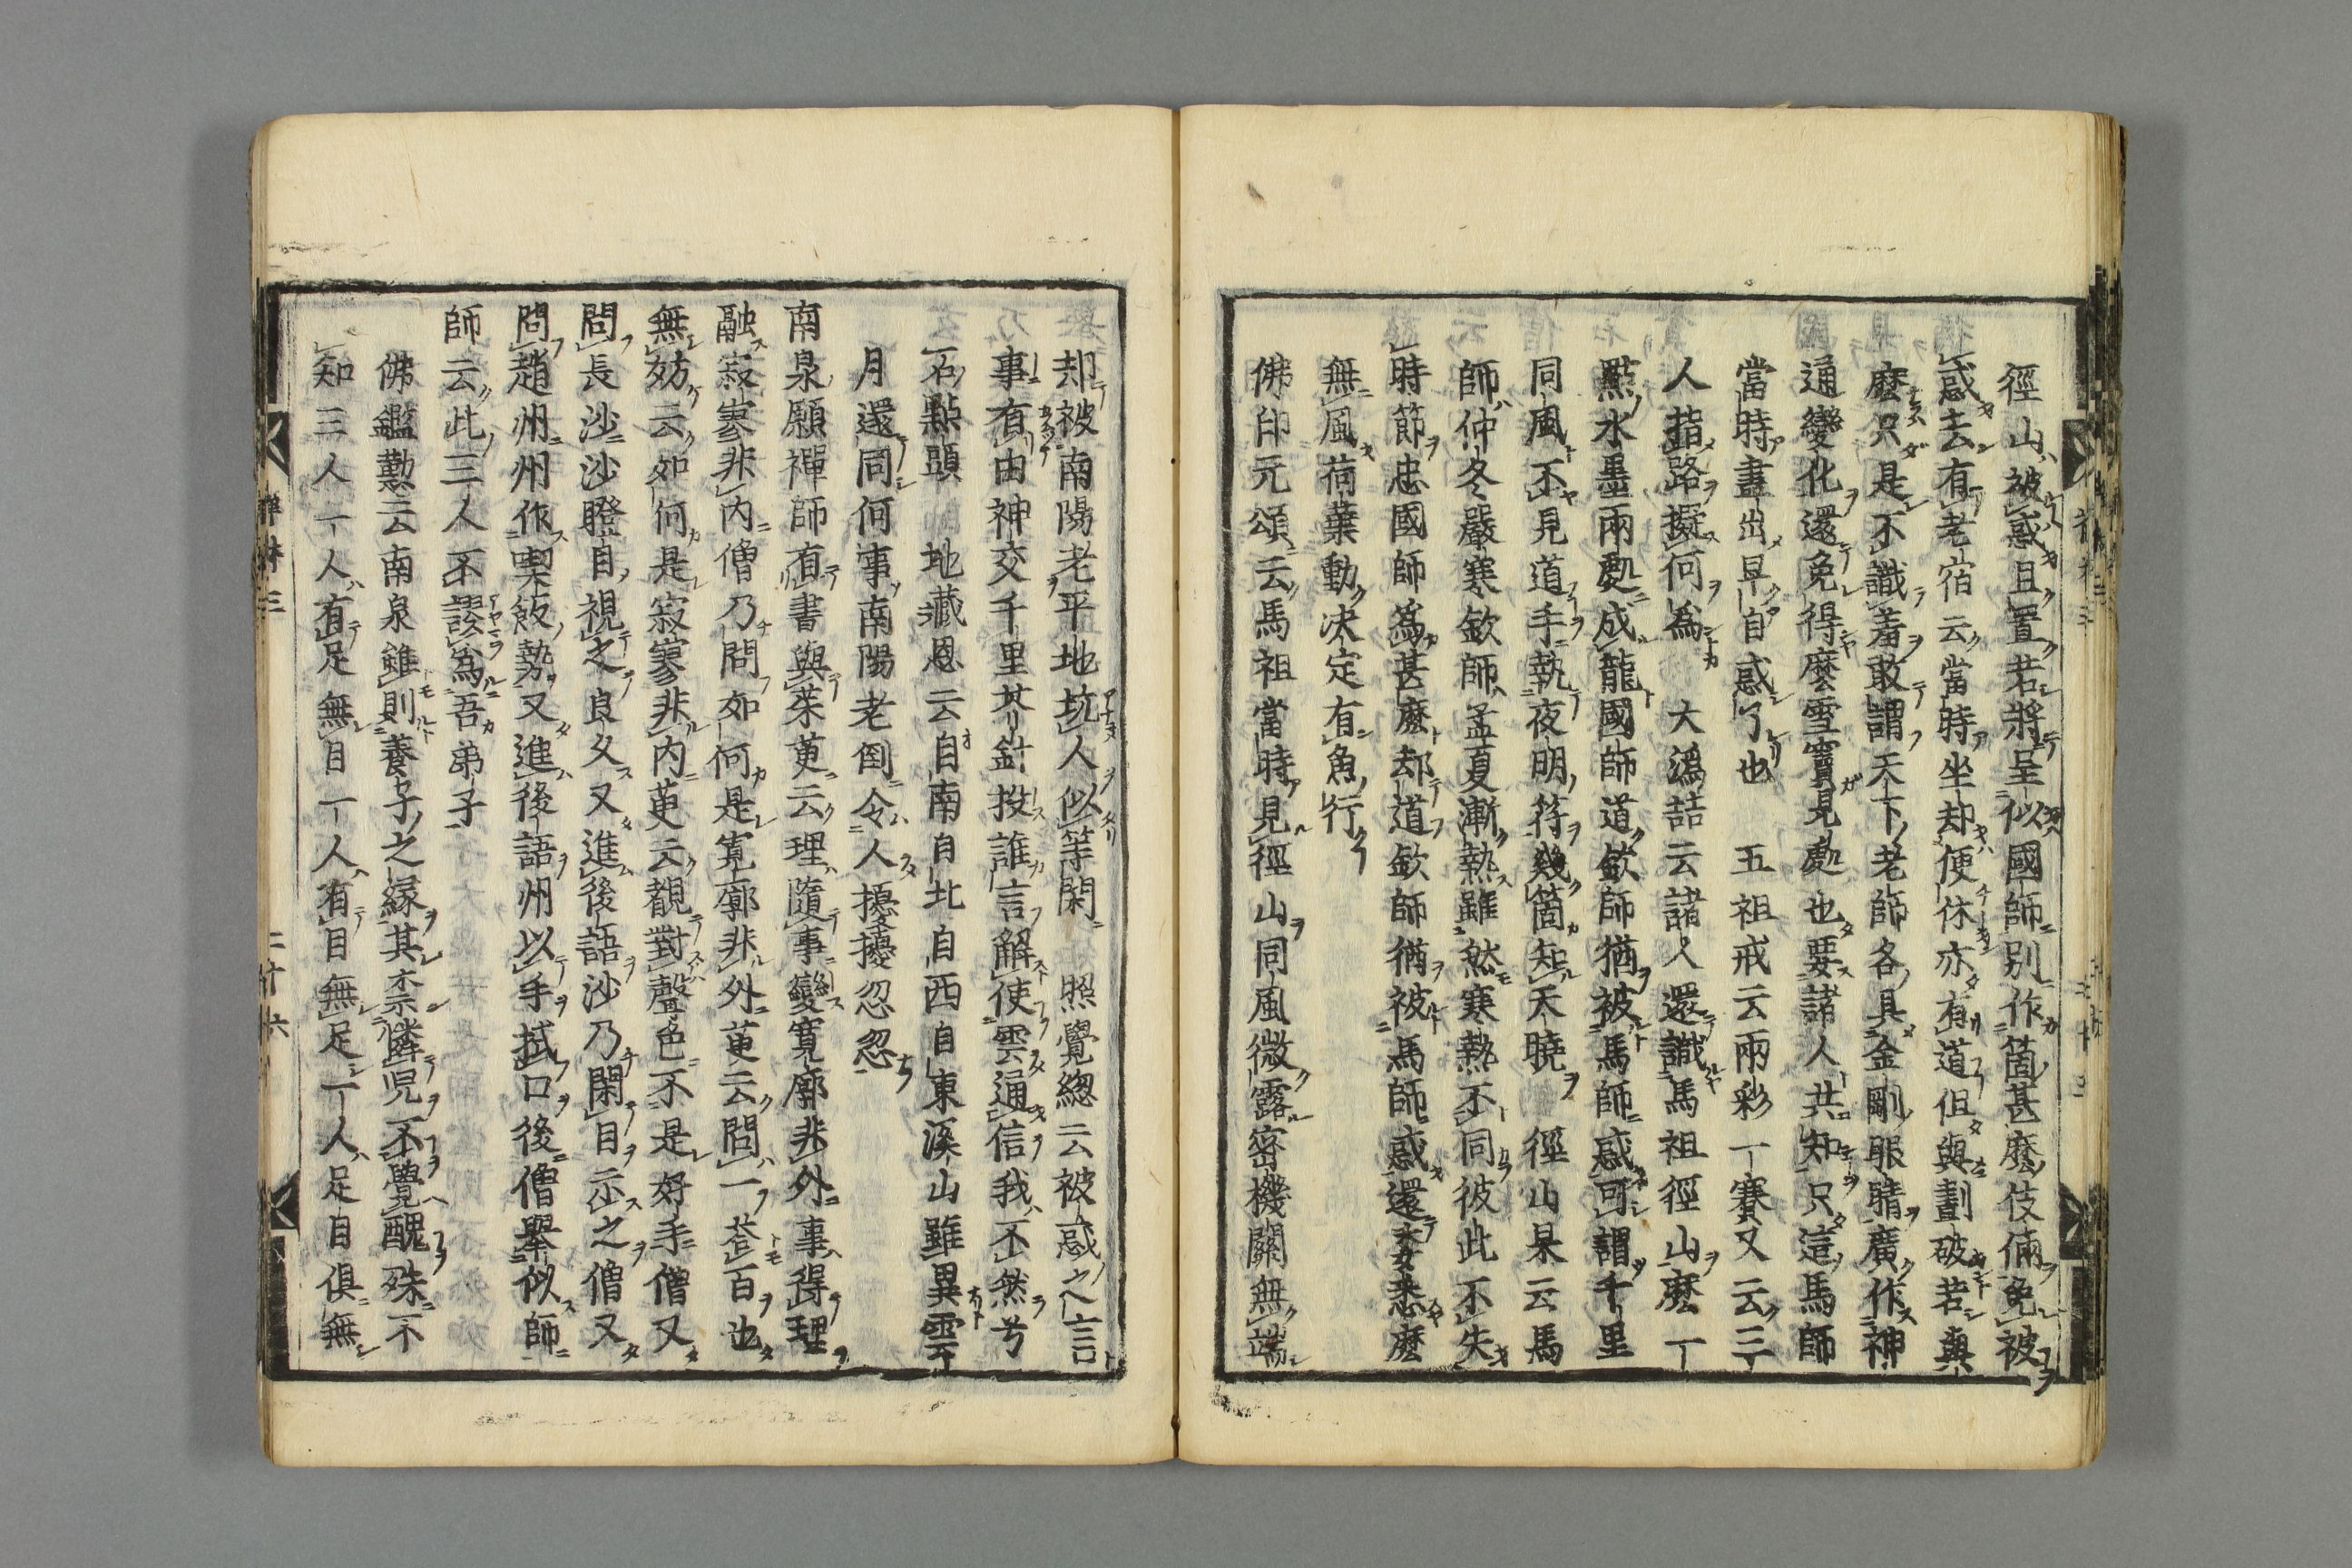 徑山被惑且置若將呈似國師別作箇甚麼伎倆免被
惑去有老宿云當時坐却便休亦有道但與劃破若與
麼只是不識羞敢謂天下老師各具金剛眼睛廣作神
通變化還免得麼雪竇見處也要諸人共知只這馬師
當時畫出早自惑了也　五祖戒云兩彩一賽又云三
人指路擬何爲　大溈喆云諸人還識馬祖徑山麼一
點水墨兩處成龍國師道欽師猶被馬師惑可謂千里
同風不見道手執夜明符幾箇知天曉　徑山杲云馬
師仲冬嚴寒欽師孟夏漸熱雖然寒熱不同彼此不失
時節忠國師爲甚麼却道欽師猶被馬師惑還委悉麼
無風荷葉動決定有魚行
佛印元頌云馬祖當時見徑山同風微露密機關無端
却被南陽老平地坑人似等閑　照覺總云被惑之言
事有由神交千里芥針投誰言解使雲通信我不然兮
石點頭　地藏恩云自南自北自西自東溪山雖異雲
月還同何事南陽老倒令人擾擾忽忽
南泉願禪師有書與茱萸云理隨事變寬廓非外事得理
融寂寥非内僧乃問如何是寬廓非外萸云問一荅百也
無妨云如何是寂寥非内萸云覩對聲色不是好手僧又
問長沙沙瞪目視之良久又進後語沙乃閉目示之僧又
問趙州州作喫飯勢又進後語州以手拭口後僧舉似師
師云此三人不謬爲吾弟子
佛鑑懃云南泉雖則養子之緣其柰憐兒不覺醜殊不
知三人一人有足無目一人有目無足一人足目俱無
二十六